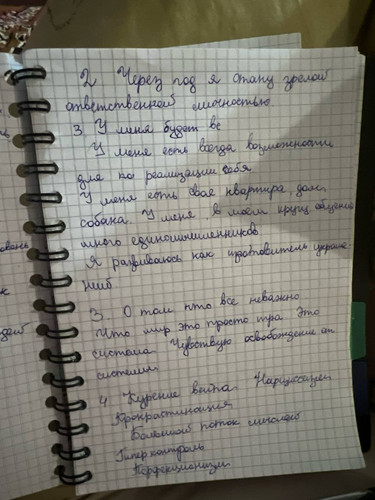 2 Через год я стану зрелой
ответственной личностью.
3. У меня будет все
У меня есть всегда возможности
для реализации себя
У меня есть своя квартира, дом,
собака. У меня в моем кругу общения
много единомышленников.
Я развиваюсь как изготовитель украше-
ний
3. О том что все неважно
Что мир это просто игра это
система. Чувствую освобождение от
системы
4 Курение вейпа Нарциссизм
Прокрастинация
Большой поток мыслей
Гиперконтроль
Перфекционизм